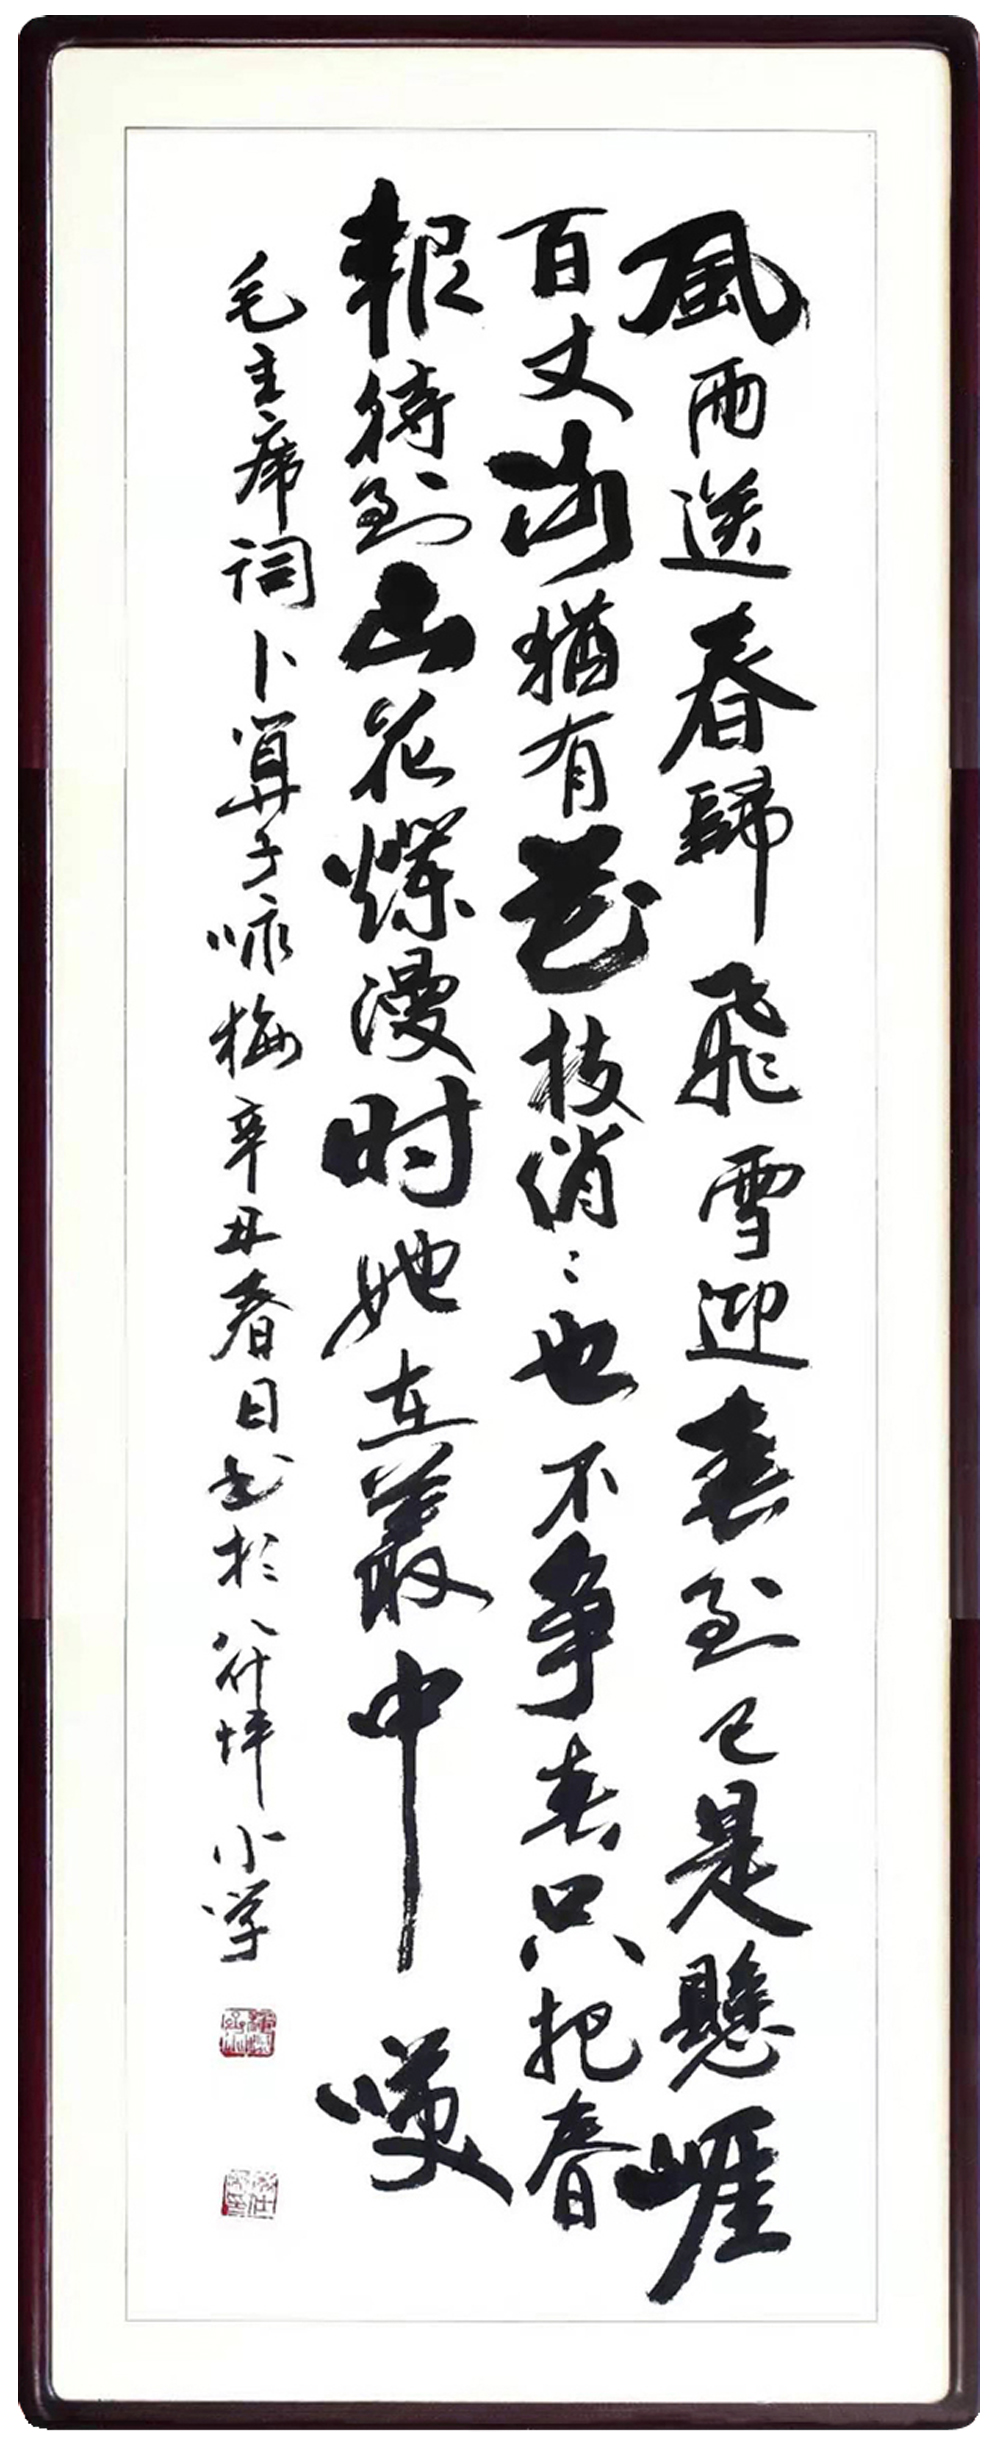 風雨送春歸飛雪迎春到已是懸崖
百丈冰猶有花枝俏〻也不争春只把春
報待到山花爛漫时她在叢中笑
毛主席词卜算子咏梅辛丑春日书於公竹坪小学